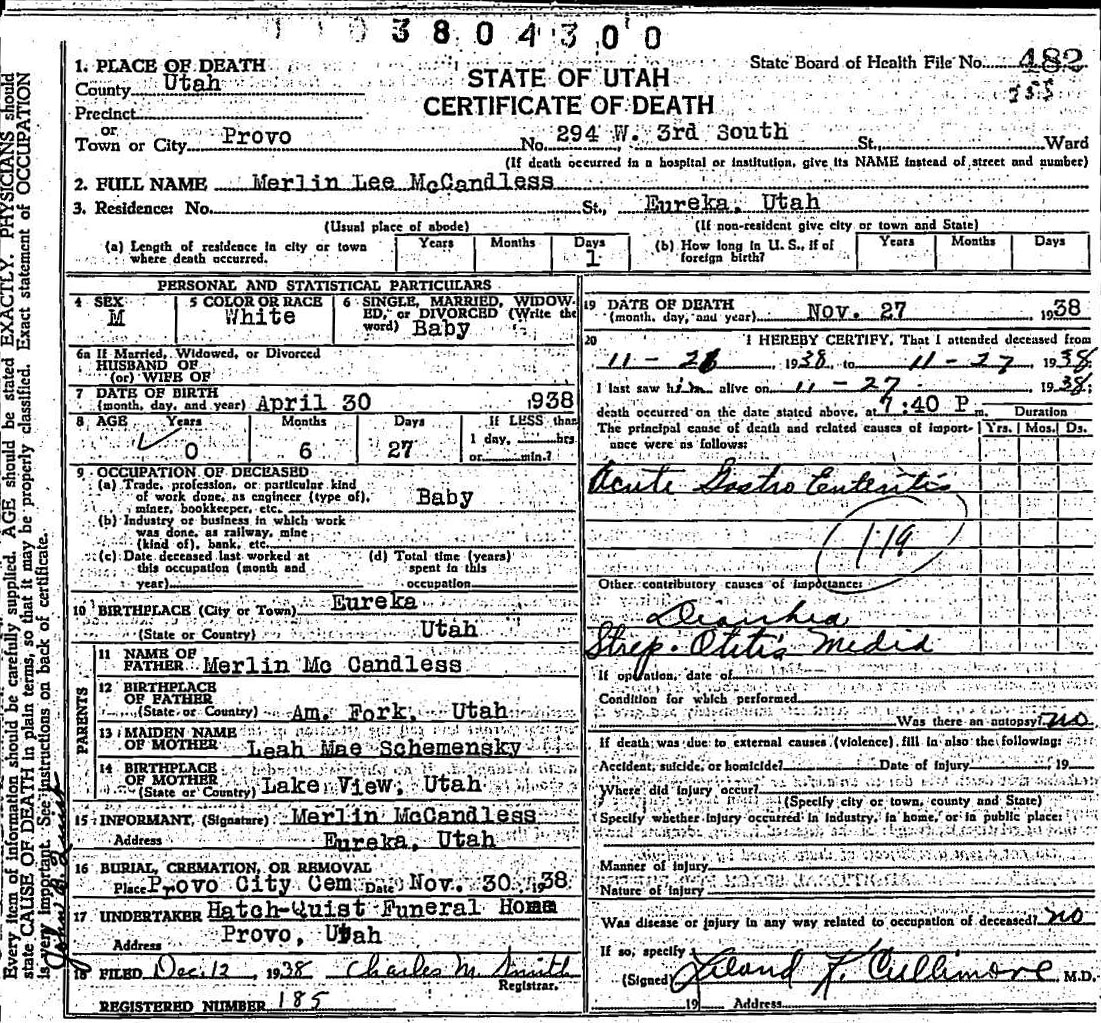 3804300
State Board of Health File No. 482
355
1. PLACE OF DEATH
STATE OF UTAH
CERTIFICATE OF DEATH
County Utah
Precinct
or
Town or City Provo No. 294 W. 3rd South St., Ward
(If death occurred in a hospital or institution, give its NAME instead of street and number)
2. FULL NAME Merlin Lee McCandless
3. Residence: No. St., Eureka, Utah
(Usual place of abode) (If non-resident give city or town and State)
(a) Length of residence in city or town where death occurred. Years Months Days 1
(b) How long in U. S., if of foreign birth? Years Months Days
PERSONAL AND STATISTICAL PARTICULARS
4 SEX M
5 COLOR OR RACE White
6 SINGLE, MARRIED, WIDOW-
ED, or DIVORCED (Write the
word) Baby
6a If Married, Widowed, or Divorced
HUSBAND OF
(or) WIFE OF
7 DATE OF BIRTH
(month, day, and year) April 30 1938
8 AGE Years Months Days If LESS than
0 6 27 1 day, hrs
or min.?
9 OCCUPATION OF DECEASED
(a) Trade, profession, or particular kind
of work done, as engineer (type of),
miner, bookkeeper, etc. Baby
(b) Industry or business in which work
was done, as railway, mine
(kind of), bank, etc.
(c) Date deceased last worked at
this occupation (month and
year)
(d) Total time (years)
spent in this
occupation
10 BIRTHPLACE (City or Town) Eureka
(State or Country) Utah
PARENTS
11 NAME OF
FATHER Merlin Mc Candless
12 BIRTHPLACE
OF FATHER
(State or Country) Am. Fork, Utah
13 MAIDEN NAME
OF MOTHER Leah Mae Schemensky
14 BIRTHPLACE
OF MOTHER
(State or Country) Lake View, Utah
15 INFORMANT, (Signature) Merlin McCandless
Address Eureka, Utah
16 BURIAL, CREMATION, OR REMOVAL
Place Provo City Cem Date Nov. 30, 1938
17 UNDERTAKER Hatch-Quist Funeral Home
Address Provo, Utah
18 FILED Dec. 12, 1938 Charles M. Smith
Registrar.
REGISTERED NUMBER 185
19 DATE OF DEATH
(month, day, and year) Nov. 27, 1938
20 I HEREBY CERTIFY, That I attended deceased from
11-26, 1938, to 11-27, 1938,
I last saw him alive on 11-27, 1938;
death occurred on the date stated above, at 7:40 P m.
Duration
The principal cause of death and related causes of import- Yrs. Mos. Ds.
ance were as follows:
Acute Gastro Enteritis
119
Other contributory causes of importance:
Diarrhea
Strep. Otitis Media
If operation, date of
Condition for which performed
Was there an autopsy? no
If death was due to external causes (violence), fill in also the following:
Accident, suicide, or homicide? Date of injury 19
Where did injury occur?
(Specify city or town, county and State)
Specify whether injury occurred in industry, in home, or in public place:
Manner of injury
Nature of injury
Was disease or injury in any way related to occupation of deceased? no
If so, specify
(Signed) Leland K. Cullimore M.D.
19 Address
Every item of information should be carefully supplied. AGE should be stated EXACTLY. PHYSICIANS should
state CAUSE OF DEATH in plain terms, so that it may be properly classified. Exact statement of OCCUPATION
is very important. See instructions on back of certificate.